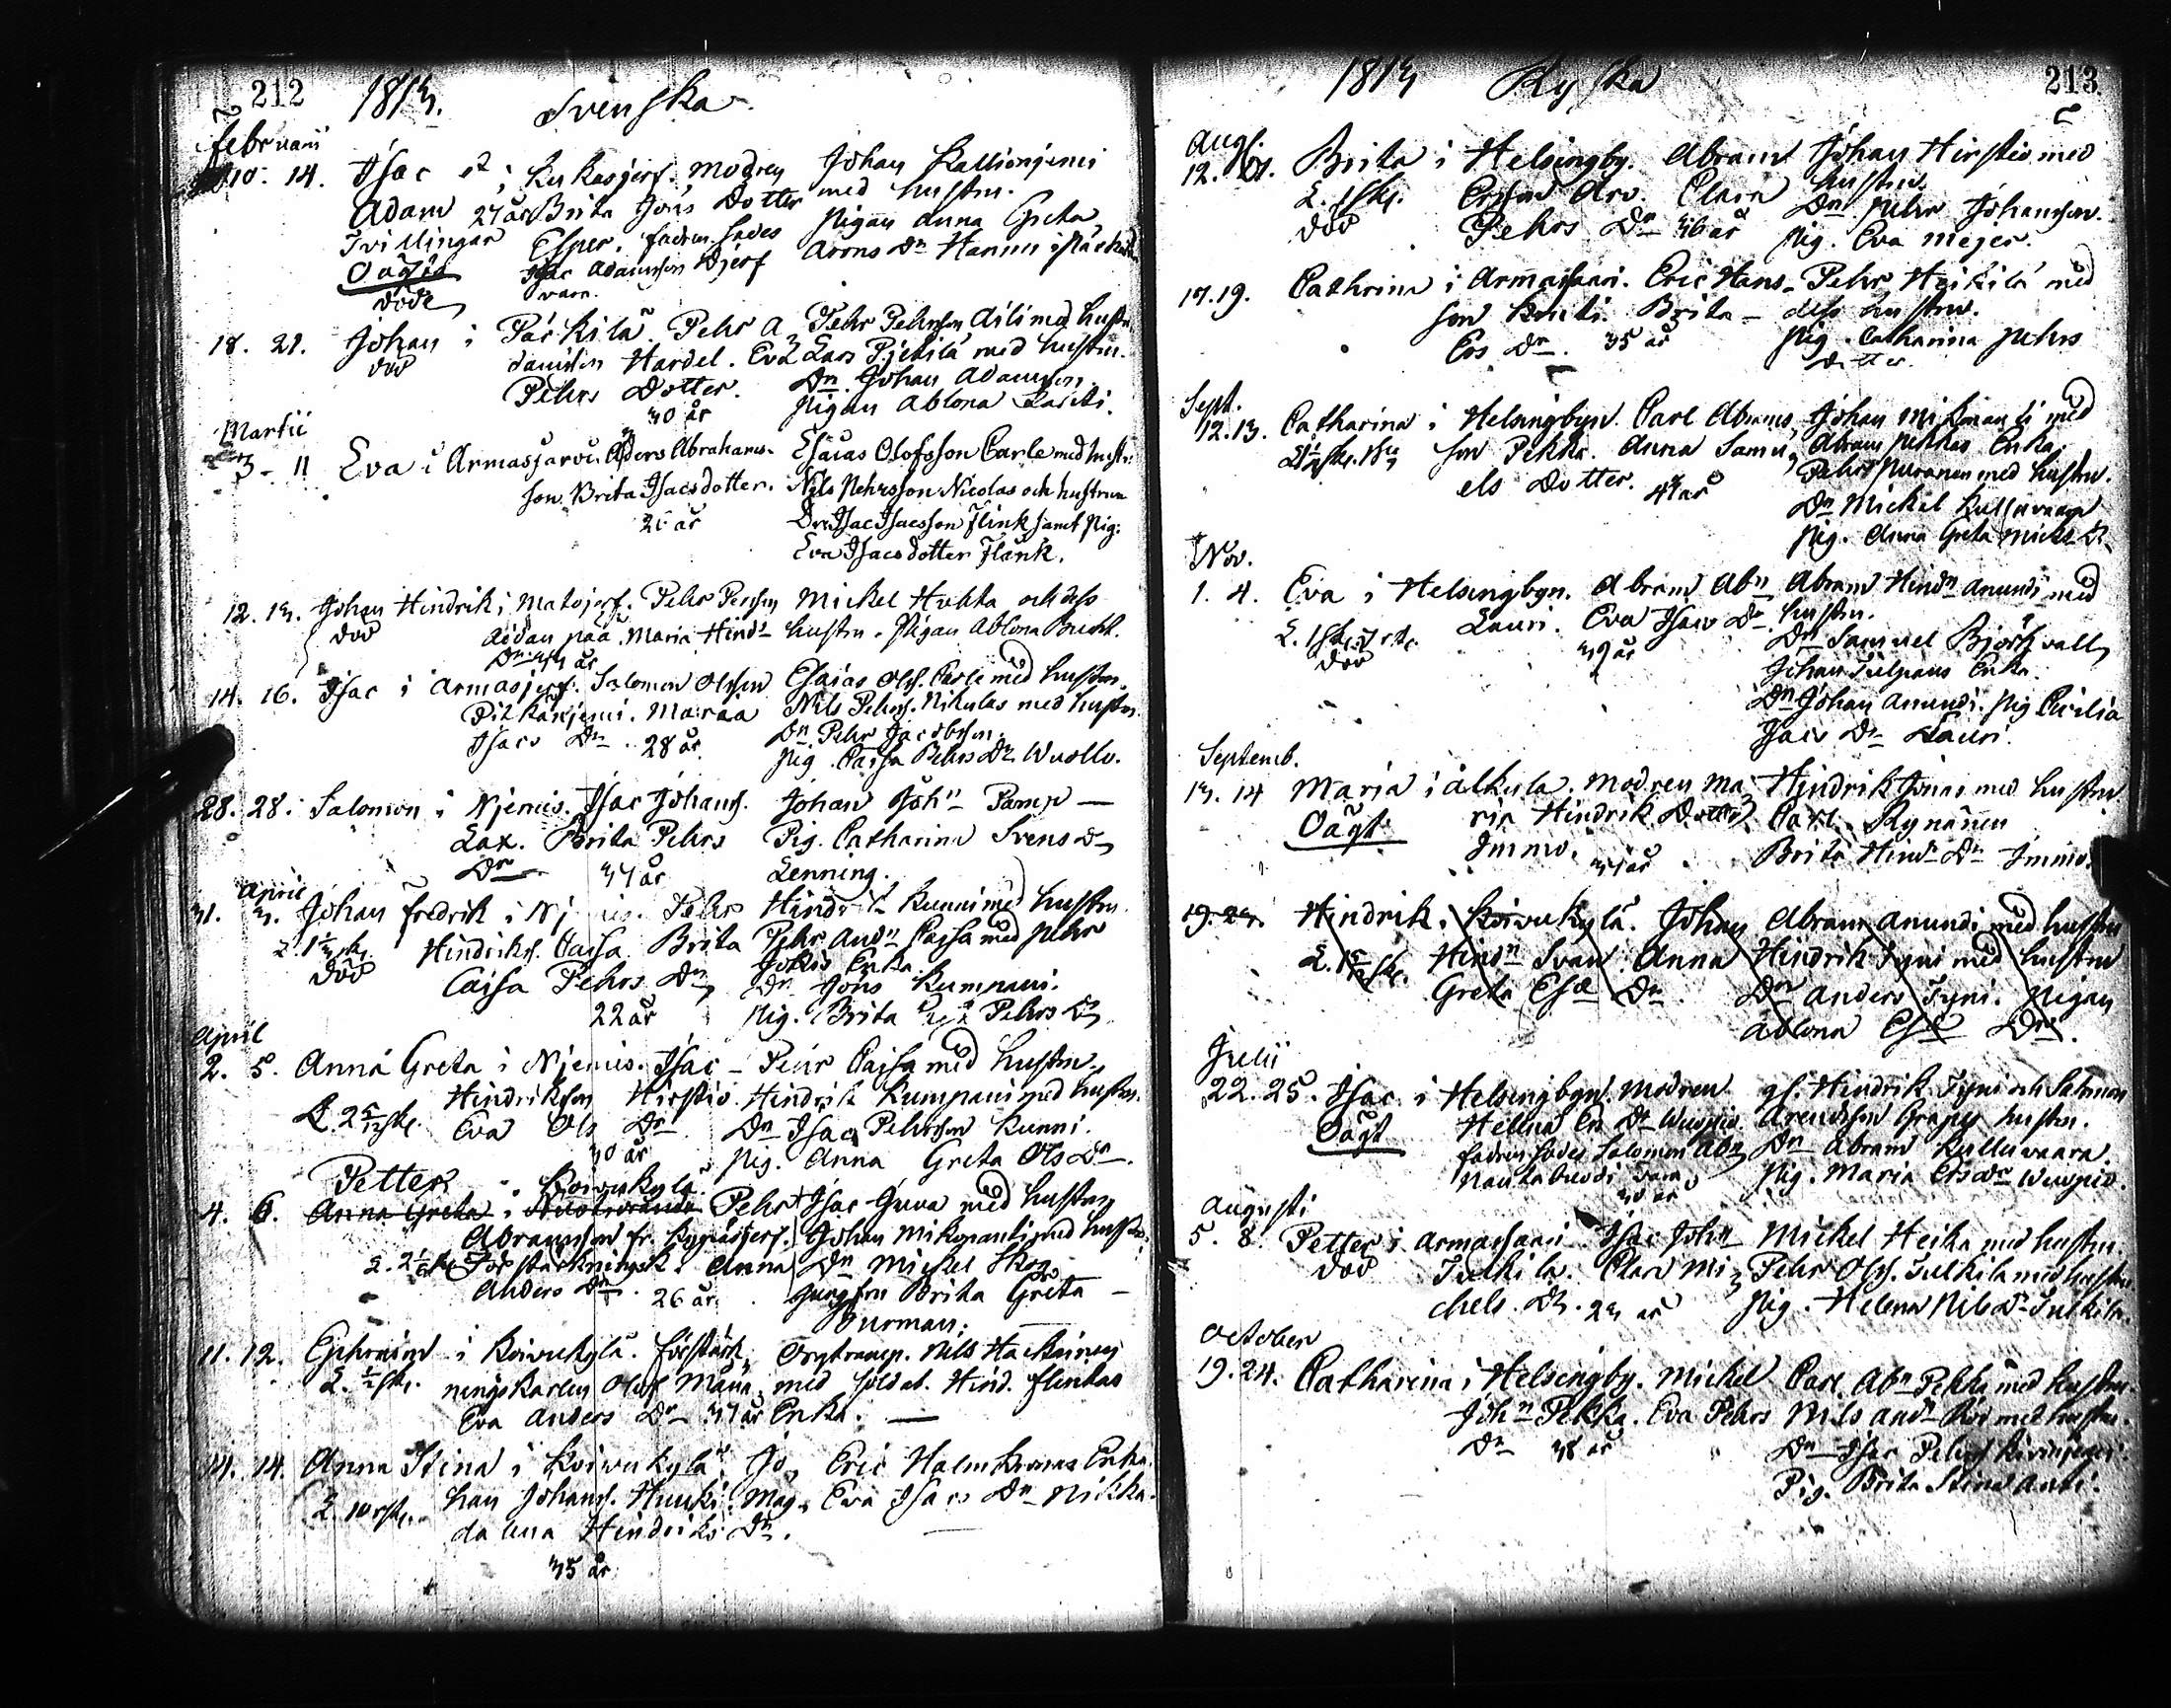 212 1813. Svenska
Februarii
10. 14. Isac et i Kukasjerf. Modren Johan Kallionjemi
Adam 27 år Brita Jöns Dotter med hustru.
Tvillingar Esper. fadren sades Pigan Anna Greta
Oägta Isac Adamsson Djerf Arons Dr Hannu i Päckilä
döde vara.
18. 21. Johan i Päckilä Pehr A Pehr Pehrsson Aili med hustru
död damsson Hardel. Eva Lars Pjekilä med hustru.
Pehrs Dotter. Dn. Johan Adamsson.
30 år Pigan Ablona Lariti.
Martii
3 - 11 Eva i Armasjarvi. Aders Abrahams- Esaias Olofsson Carle med hustr:
son. Brita Isacsdotter. Nils Pehrsson Nicolas och hustrun
26 år Dr. Isac Isacsson Flink samt Pig:
Eva Isacsdotter Flänk.
12. 13. Johan Hindrik i Matojerf. Pehr Persson Mickel Huhta och dess
död Aidanpää. Maria Hindr hustru. Pigan Ablona Bucht.
Dr. 33 år
14. 16. Isac i Armasjerf. Salomon Olsson Esaias Olss. Carle med hustru.
Pitkänjemi. Maria Nils Pehrss. Nikulas med hustru
Isacs Dr. 28 år Dn Pehr Jacobsson.
Pig. Caisa Pehrs Dr Wuollo.
28. 28. Salomon i Njemis. Isac Johanss. Johan John Pamp —
Lax. Brita Pehrs Pig. Catharina Svens Dr
Dr 37 år Lenning.
April
31. 3. Johan Fredrik i Nj is. Pehr Hindrik Kunni med hustru
L. 1 1/2 sk. Hindrikss. Caisa Brita Pehr Andn Caisa med Pehr
död Caisa Pehrs Dr Jokis Enka.
22 år Dn Jöns Kumpani.
Pig. Brita Caisa Pehrs Dr
April
2. 5. Anna Greta i Njemis. Isac - Pehr Caisa med hustru.
Hindriksson Hirstiö. Hindrik Kumpani med hustru.
L. 2 1/2 sk. Eva Ols Dr Dn Isac Pehrsson Kunni.
30 år Pig. Anna Greta Ols Dr.
Petter Koivukylä
4. 6. Anna Greta i Pehr Isac Juva med hustru
Abramsson fr. Kypäsjerf. Johan Mikonanti med hustru
2. 2 1/2 sk Förstärkningsk. Anna Dn Mickel Skog
Anders Dr. 26 år Jungfru Brita Greta —
Burman.
11. 12. Ephraim i Koivukylä. Förstärk Nils Hackzinen
L. 1/2 sk. ningskarlen Olof Måna med Soldat. Hind. Flinkas
Eva Anders Dr 37 år Enka. —
14. 14. Anna Stina i Koivukylä. Jo Eric Halmkronas Enka.
2. 10 rsk. han Johanss. Huuki. Mag Eva Isacs Dr Nikka.
dalena Hindriks Dr.
35 år
1813 Ryska 213
Aug.
12. Brita i Helsingby. Abram Johan Hirstiö med
L. 1 sk. Ersson Arv. Clara hustru.
död Pehrs Dr 36 år Dn Pehr Johansson.
Pig. Eva Mejer.
17. 19. Cathrina i Armasaari. Eric Hans- Pehr Heikilä med
son Kenti. Brita — dess hustru.
Ers Dr. 35 år Pig. Catharina Pehrs
Dotter.
Sept.
12. 13. Catharina i Helsingbyn. Carl Abrams Johan Mikonanti med
son Pekka. Anna Samu Abram Pekkas Enka.
els Dotter. 41 år Pehr Puranen med hustru.
Dn Mickel Kulluvaara
Pig. Anna Greta Mickls Dr
Nov.
1. 4. Eva i Helsingbyn. Abram Abn Abram Hindn Anundi med
L. 1 sk. Lauri. Eva Isacs Dr hustru.
död 39 år Dn Samuel Björkvall
Johan Tulpans Enka.
Dn Johan Anundi. Pig Cicilia
Isacs Dr Lauri.
Septemb.
13. 14 Maria i Alkula. Modren Ma Hindrik Jonas med hustru
Oägt. ria Hindrik Dotter Carl Kynänen
Immo. 31 år Brita Hinds Dr Immo.
19. 23. Hindrik i Koivukylä. Johan Abram Anundi med hustru
Hindn Svan. Anna Hindrik Tyni med hustru
Greta Es Dr Dn Anders Tyni. Pigan
Ablona Es Dr.
Julii
22. 25. Isac i Helsingbyn. Modren gf. Hindrik Tyni och Salomon
Oägt Helena Ers Dr Wuopio Arendsson Grapes hustru.
fadren sades Salomon Abn Dn Abram Kulluvaara
Nautabuodi vara Pig. Maria Ers Dr Wuopio.
30 år
Augusti
5. 8. Petter i Armasaari Isac John Mickel Heika med hustru.
död Julkila. Clara Mi Pehr Olss. Julkila med hustru
chels. Dr. 23 år Pig. Helena Nils Dr Julkila.
October
19. 24. Catharina i Helsingby. Mickel Carl Abn Pekka med hustru.
John Pekka. Eva Pehrs Nils Andn Röd med hustru.
Dr 38 år Dn Isac Pehrss Kivinjemi.
Pig. Brita Stina Anti.